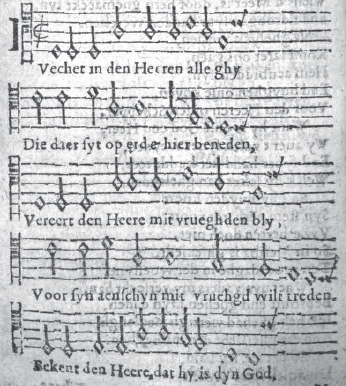 Vechet in den Heeren alle ghy
Die daer syt op erde hier beneden,
Vereert den Heere mit vrueghden bly,
Voor syn aenschyn mit vruehgd wilt treden.
Bekent den Heere, dat hy is dyn God,